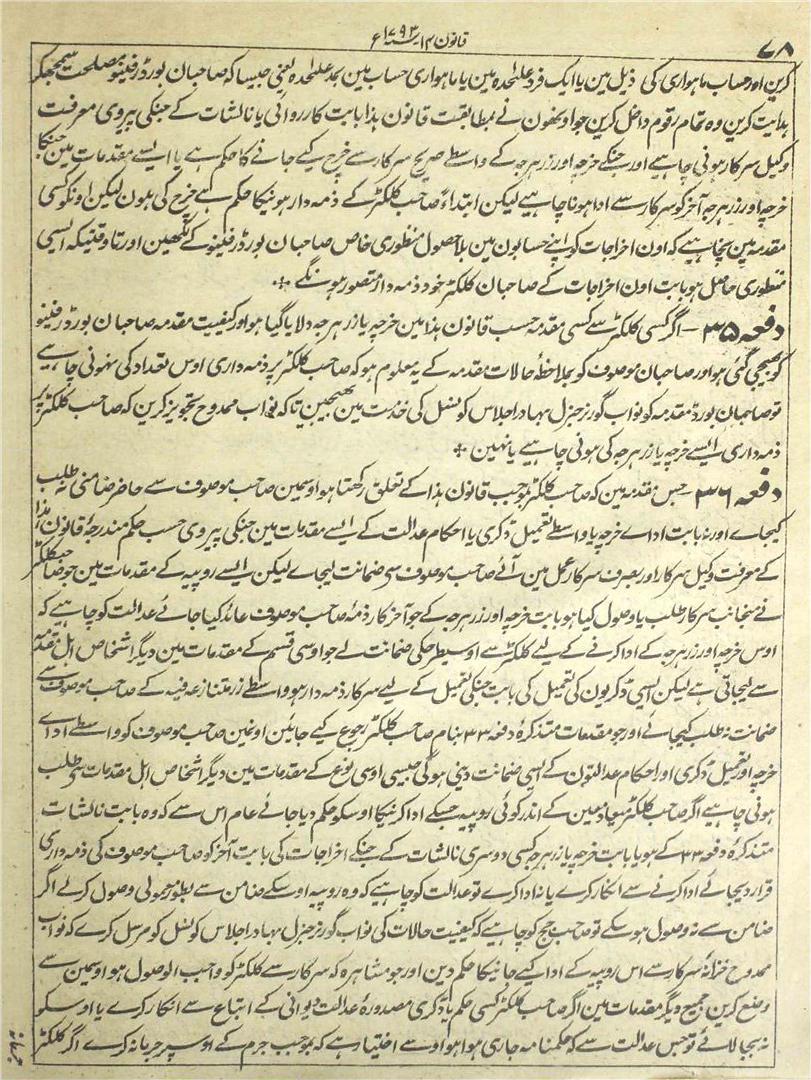 ۷۸
قانون ۱۴ سنہ ۱۷۹۳ ء
کرین اور حساب ماہواری کی ذیل مین یا ایک فرد علٰحدہ مین یا ماہواری حساب مین بمد علٰحدہ یعنی جیسا کہ صاحبان بورڈ رفینیو مصلحت سمجھکر
ہدایت کرین وہ تمام رقوم داخل کرین جو اونھون نے بمطابقت قانون ہذا بابت کارروائی یا نالشات کے جنکی پیروی معرفت
وکیل سرکار ہونی چاہیے اور جنکے خرچہ اور زر ہرجہ کے واسطے صریح سرکار سے خرچ کیے جانے کا حکم ہے یا ایسے مقدمات مین جنکا
خرچہ اور زر ہرجہ آخر کو سرکار سے ادا ہونا چاہیے لیکن ابتداءً صاحب کلکٹر کے ذمہ دار ہونیکا حکم ہے خرچ کی ہون لیکن اونکو کسی
مقدمہ مین نچاہیے کہ اون اخراجات کو اپنے حسابون مین بلا حصول منظوری خاص صاحبان بورڈ رفینیو کے لکھین اور تا وقتیکہ ایسی
منظوری حاصل ہو بابت اون اخراجات کے صاحبان کلکٹر خود ذمہ دار متصور ہونگے ٭
دفعہ ۳۵ – اگر کسی کلکٹر سے کسی مقدمہ حسب قانون ہذا مین خرچہ یا زر ہرجہ دلایا گیا ہو اور کیفیت مقدمہ صاحبان بورڈ رفینیو
کو بھیجی گئی ہو اور صاحبان موصوف کو بملاحظۂ حالات مقدمہ کے یہ معلوم ہو کہ صاحب کلکٹر پر ذمہ داری اوس تعداد کی نہونی چاہیے
تو صاحبان بورڈ مقدمہ کو نواب گورنر جنرل بہادر اجلاس کونسل کی خدمت مین بھیجین تاکہ نواب ممدوح تجویز کرین کہ صاحب کلکٹر پر
ذمہ داری ایسے خرچہ یا زر ہرجہ کی ہونی چاہیے یا نہین ٭
دفعہ ۳۶ – جس مقدمہ مین کہ صاحب کلکٹر بموجب قانون ہذا کے تعلق رکھتا ہو اوسمین صاحب موصوف سے حاضر ضامنی نہ طلب
کیجاے اور نہ بابت اداے خرچہ یا واسطے تعمیل ڈگری یا احکام عدالت کے ایسے مقدمات مین جنکی پیروی حسب حکم مندرجۂ قانون ہذا
کے معرفت وکیل سرکار اور بصرف سرکار عمل مین آئے صاحب موصوف سے ضمانت لیجاے لیکن ایسے روپیہ کے مقدمات مین جو صاحب کلکٹر
نے منجانب سرکار طلب یا وصول کیا ہو بابت خرچہ اور زر ہرجہ کے جو آخر کار ذمۂ صاحب موصوف عائد کیا جائے عدالت کو چاہیے کہ
اوس خرچہ اور زر ہرجہ کے ادا کرنے کے لیے کلکٹر سے اوسیطرحکی ضمانت لے جو اوسی قسم کے مقدمات مین دیگر اشخاص اہل مقدمہ
سے لیجاتی ہے لیکن ایسی ڈگریون کی تعمیل کی بابت جنکی تعمیل کے لیے سرکار ذمہ دار ہو واسطے زر متنازعہ فیہ کے صاحب موصوف سے
ضمانت نہ طلب کیجائے اور جو مقدمات متذکرۂ دفعہ ۳۳ بنام صاحب کلکٹر رجوع کیے جائین اونمین صاحب موصوف کو واسطے اداے
خرچہ اور تعمیل ڈگری اور احکام عدالتون کے ایسی ضمانت دینی ہوگی جیسی اوسی نوع کے مقدمات مین دیگر اشخاص اہل مقدمات سے طلب
ہونی چاہیے اگر صاحب کلکٹر میعاد معین کے اندر کوئی روپیہ جسکے ادا کرنیکا اوسکو حکم دیا جائے عام اس سے کہ وہ بابت نالشات
متذکرۂ دفعہ ۳۳ کے ہو یا بابت خرچہ یا زر ہرجہ کسی دوسری نالشات کے جنکے اخراجات کی بابت آخر کو صاحب موصوف کی ذمہ داری
قرار دیجائے ادا کرنے سے انکار کرے یا نہ ادا کرے تو عدالت کو چاہیے کہ وہ روپیہ اوسکے ضامن سے بطور معمولی وصول کرلے اگر
ضامن سے نہ وصول ہوسکے تو صاحب جج کو چاہیے کہ کیفیت حالات کی نواب گورنر جنرل بہادر اجلاس کونسل کو مرسل کرے کہ نواب
ممدوح خزانۂ سرکار سے اس روپیہ کے ادا کیے جانیکا حکم دین اور جو مشاہرہ کہ سرکار سے کلکٹر کو واجب الوصول ہو اوسمین سے
وضع کرین جمیع دیگر مقدمات مین اگر صاحب کلکٹر کسی حکم یا ڈگری مصدورۂ عدالت دیوانی کے اتباع سے انکار کرے یا اوسکو
نہ بجا لائے تو جس عدالت سے کہ حکمنامہ جاری ہوا ہو اوسے اختیار ہے کہ بموجب جرم کے اوسپر جرمانہ کرے اگر کلکٹر